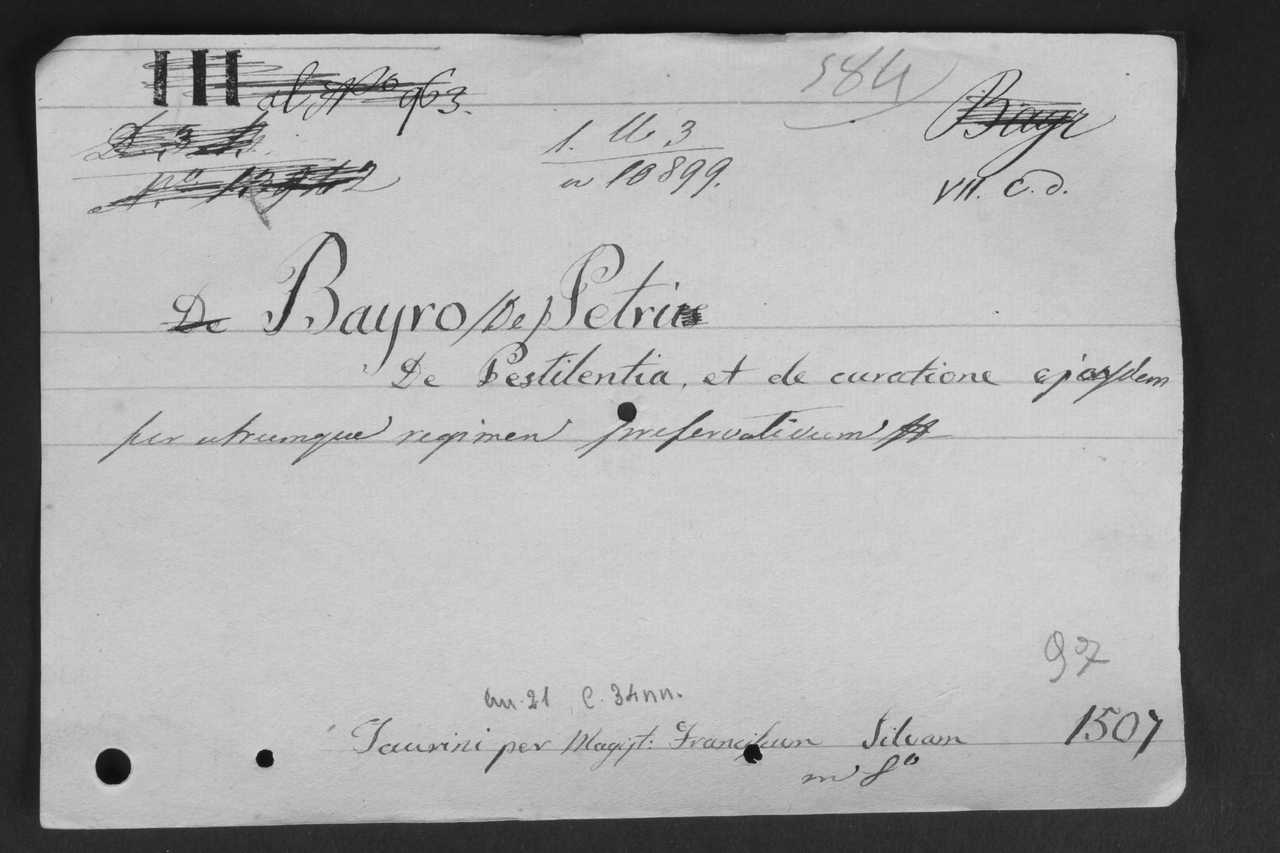 III al N.º 963.
584
Bayr
1. U. 3
n 10899.
VII. C. d.
De Bayro (De) Petri
De Pestilentia, et de curatione ejusdem
per utrumque regimen preservativum
97
cm. 21 C. 34nn.
Taurini per Magist: Franciscum Silvam 1507
in 8º